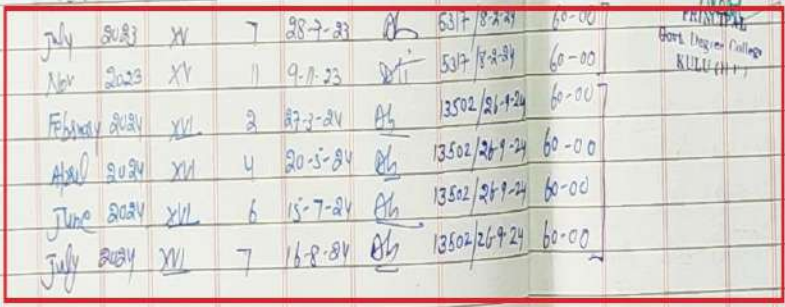 July 2023 XV 7 28-7-23 5317/8-2-24 60-00
Nov 2023 XV 11 9-11-23 5317/8-2-24 60-00
February 2024 XVI 2 27-3-24 13502/26-9-24 60-00
April 2024 XVI 4 20-5-24 13502/26-9-24 60-00
June 2024 XVI 6 15-7-24 13502/26-9-24 60-00
July 2024 XVI 7 16-8-24 13502/26-9-24 60-00
PRINCIPAL
Govt. Degree College
KULLU